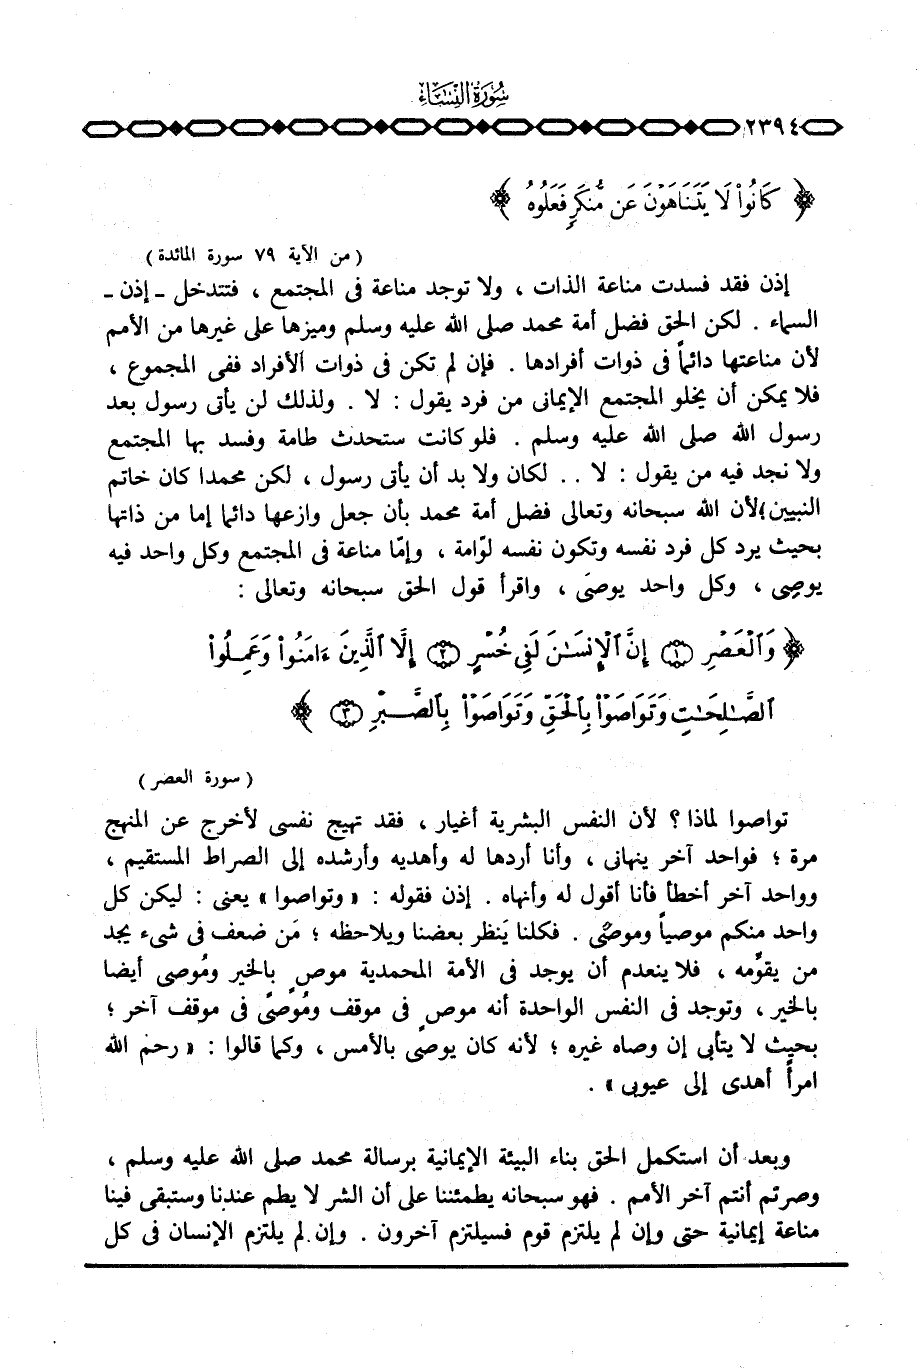 سُورَةُ النِّسَاءِ
٢٣٩٤
﴿ كَانُوا۟ لَا يَتَنَاهَوْنَ عَن مُّنكَرٍ فَعَلُوهُ ﴾
( من الآية ٧٩ سورة المائدة )
إذن فقد فسدت مناعة الذات ، ولا توجد مناعة فى المجتمع ، فتتدخل ـ إذن ـ
السماء . لكن الحق فضل أمة محمد صلى الله عليه وسلم وميزها على غيرها من الأمم
لأن مناعتها دائماً فى ذوات أفرادها . فإن لم تكن فى ذوات الأفراد ففى المجموع ،
فلا يمكن أن يخلو المجتمع الإيمانى من فرد يقول : لا . ولذلك لن يأتى رسول بعد
رسول الله صلى الله عليه وسلم . فلو كانت ستحدث طامة وفسد بها المجتمع
ولا نجد فيه من يقول : لا . . لكان ولا بد أن يأتى رسول ، لكن محمدا كان خاتم
النبيين ؛ لأن الله سبحانه وتعالى فضل أمة محمد بأن جعل وازعها دائما إما من ذاتها
بحيث يرد كل فرد نفسه وتكون نفسه لوّامة ، وإمّا مناعة فى المجتمع وكل واحد فيه
يوصِى ، وكل واحد يوصَى ، واقرأ قول الحق سبحانه وتعالى :
﴿ وَٱلْعَصْرِ ١ إِنَّ ٱلْإِنسَـٰنَ لَفِى خُسْرٍ ٢ إِلَّا ٱلَّذِينَ ءَامَنُوا۟ وَعَمِلُوا۟
ٱلصَّـٰلِحَـٰتِ وَتَوَاصَوْا۟ بِٱلْحَقِّ وَتَوَاصَوْا۟ بِٱلصَّبْرِ ٣ ﴾
( سورة العصر )
تواصوا لماذا ؟ لأن النفس البشرية أغيار ، فقد تهيج نفسى لأخرج عن المنهج
مرة ؛ فواحد آخر ينهانى ، وأنا أردها له وأهديه وأرشده إلى الصراط المستقيم ،
وواحد آخر أخطأ فأنا أقول له وأنهاه . إذن فقوله : « وتواصوا » يعنى : ليكن كل
واحد منكم موصياً وموصًى . فكلنا يَنظر بعضنا ويلاحظه ؛ مَن ضعف فى شىء يجد
من يقوِّمه ، فلا ينعدم أن يوجد فى الأمة المحمدية موصٍ بالخير ومُوصى أيضا
بالخير ، وتوجد فى النفس الواحدة أنه موصٍ فى موقف ومُوصًى فى موقف آخر ؛
بحيث لا يتأبى إن وصاه غيره ؛ لأنه كان يوصى بالأمس ، وكما قالوا : « رحم الله
امرأً أهدى إلى عيوبى » .
وبعد أن استكمل الحق بناء البيئة الإيمانية برسالة محمد صلى الله عليه وسلم ،
وصرتم أنتم آخر الأمم . فهو سبحانه يطمئننا على أن الشر لا يطم عندنا وستبقى فينا
مناعة إيمانية حتى وإن لم يلتزم قوم فسيلتزم آخرون . وإن لم يلتزم الإنسان فى كل